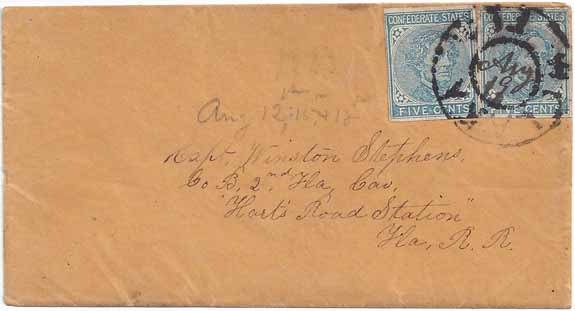 CONFEDERATE STATES CONFEDERATE STATES
Aug
19
FIVE CENTS FIVE CENTS
Aug 12, 16, & 18
Capt. Winston Stephens,
Co B, 2nd Fla, Cav,
"Hart's Road Station"
Fla, R. R.